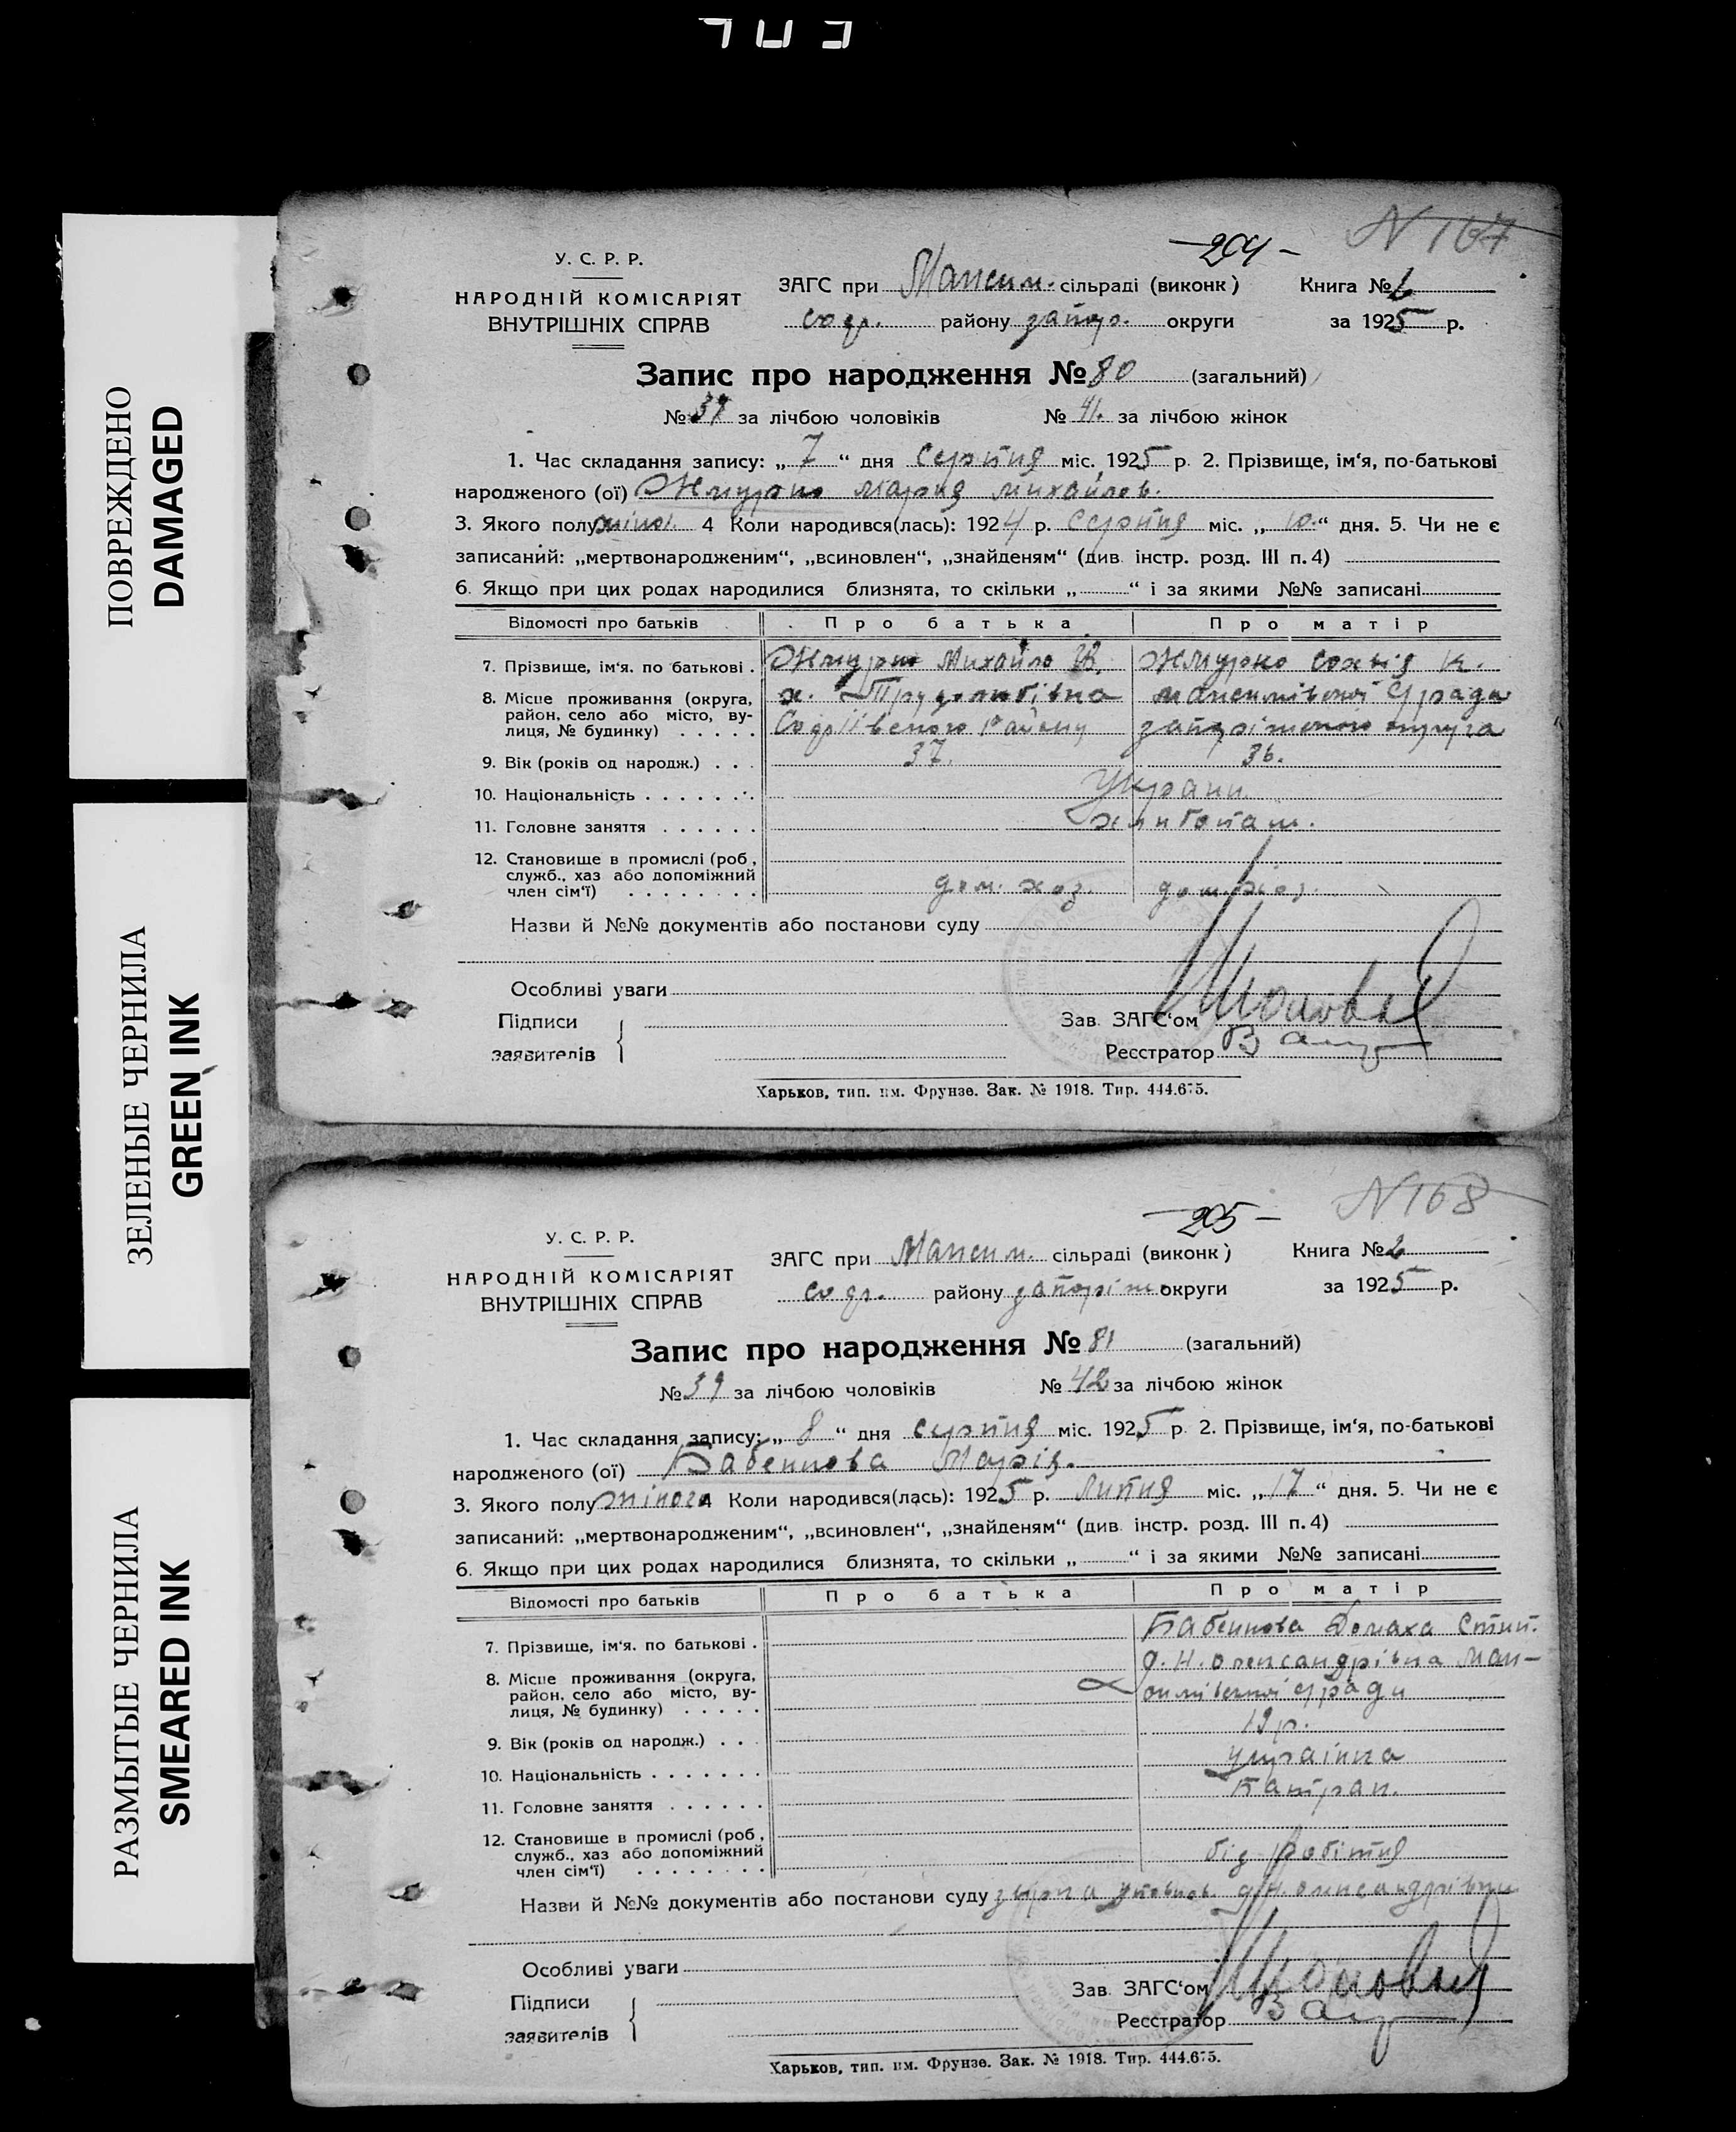 ПОВРЕЖДЕНО
DAMAGED
ЗЕЛЕНЫЕ ЧЕРНИЛА
GREEN INK
РАЗМЫТЫЕ ЧЕРНИЛА
SMEARED INK
N 167
204 -
У. С. Р. Р.
НАРОДНІЙ КОМІСАРІЯТ
ВНУТРІШНІХ СПРАВ
ЗАГС при Максим. сільраді (виконк) Книга №
соф. району запор. округи за 1925 р.
Запис про народження № 80 (загальний)
№ за лічбою чоловіків № 41. за лічбою жінок
1. Час складання запису: „ 7 “ дня Серпня міс. 1925 р. 2. Прізвище, ім'я, по-батькові
народженого (ої) Жмурко Мария Михайлов.
3. Якого полу жіноч. 4 Коли народився(лась): 1924 р. Серпня міс. „ 10. “ дня. 5. Чи не є
записаний: „мертвонародженим“, „всиновлен“, „знайденям“ (див. інстр. розд. III п. 4)
6. Якщо при цих родах народилися близнята, то скільки „ “ і за якими №№ записані
Відомості про батьків Про батька Про матір
7. Прізвище, ім'я. по батькові . Жмурко Михайло Жмурко Софія К.
8. Місце проживання (округа, х. Трудолюбівка Максимівської Сґради
район, село або місто, ву- Софіївського Району запорізького округа
лиця, № будинку) . . . . .
9. Вік (років од народж.) . . . 37. 36.
10. Національність . . . . . . . Україн.
11. Головне заняття . . . . . . хлибопаш.
12. Становище в промислі (роб.,
служб., хаз або допоміжний
член сім'ї) . . . . . . . . дом. хоз. дом. хоз.
Назви й №№ документів або постанови суду
Особливі уваги
Підписи Зав. ЗАГС'ом
заявителів Реєстратор
Харьков, тип. им. Фрунзе. Зак. № 1918. Тир. 444.675.
N 168
205 -
У. С. Р. Р.
НАРОДНІЙ КОМІСАРІЯТ
ВНУТРІШНІХ СПРАВ
ЗАГС при Максим. сільраді (виконк) Книга № 2
соф. району запоріж округи за 1925 р.
Запис про народження № 81 (загальний)
№ 39 за лічбою чоловіків № 42 за лічбою жінок
1. Час складання запису: „ 8 “ дня серпня міс. 1925 р. 2. Прізвище, ім'я, по-батькові
народженого (ої) Бабенкова Марія.
3. Якого полу жіночо 4 Коли народився(лась): 1925 р. Липня міс. „ 17 “ дня. 5. Чи не є
записаний: „мертвонародженим“, „всиновлен“, „знайденям“ (див. інстр. розд. III п. 4)
6. Якщо при цих родах народилися близнята, то скільки „ “ і за якими №№ записані
Відомості про батьків Про батька Про матір
7. Прізвище, ім'я. по батькові . Бабенкова Домаха Стип.
8. Місце проживання (округа, Олександрівка Мак-
район, село або місто, ву- симівської сґради
лиця, № будинку) . . . . .
9. Вік (років од народж.) . . . 19 р.
10. Національність . . . . . . . українка
11. Головне заняття . . . . . . Батрач.
12. Становище в промислі (роб.,
служб., хаз або допоміжний
член сім'ї) . . . . . . . . робітня
Назви й №№ документів або постанови суду Олександрівки
Особливі уваги
Підписи Зав. ЗАГС'ом
заявителів Реєстратор
Харьков, тип. им. Фрунзе. Зак. № 1918. Тир. 444.675.